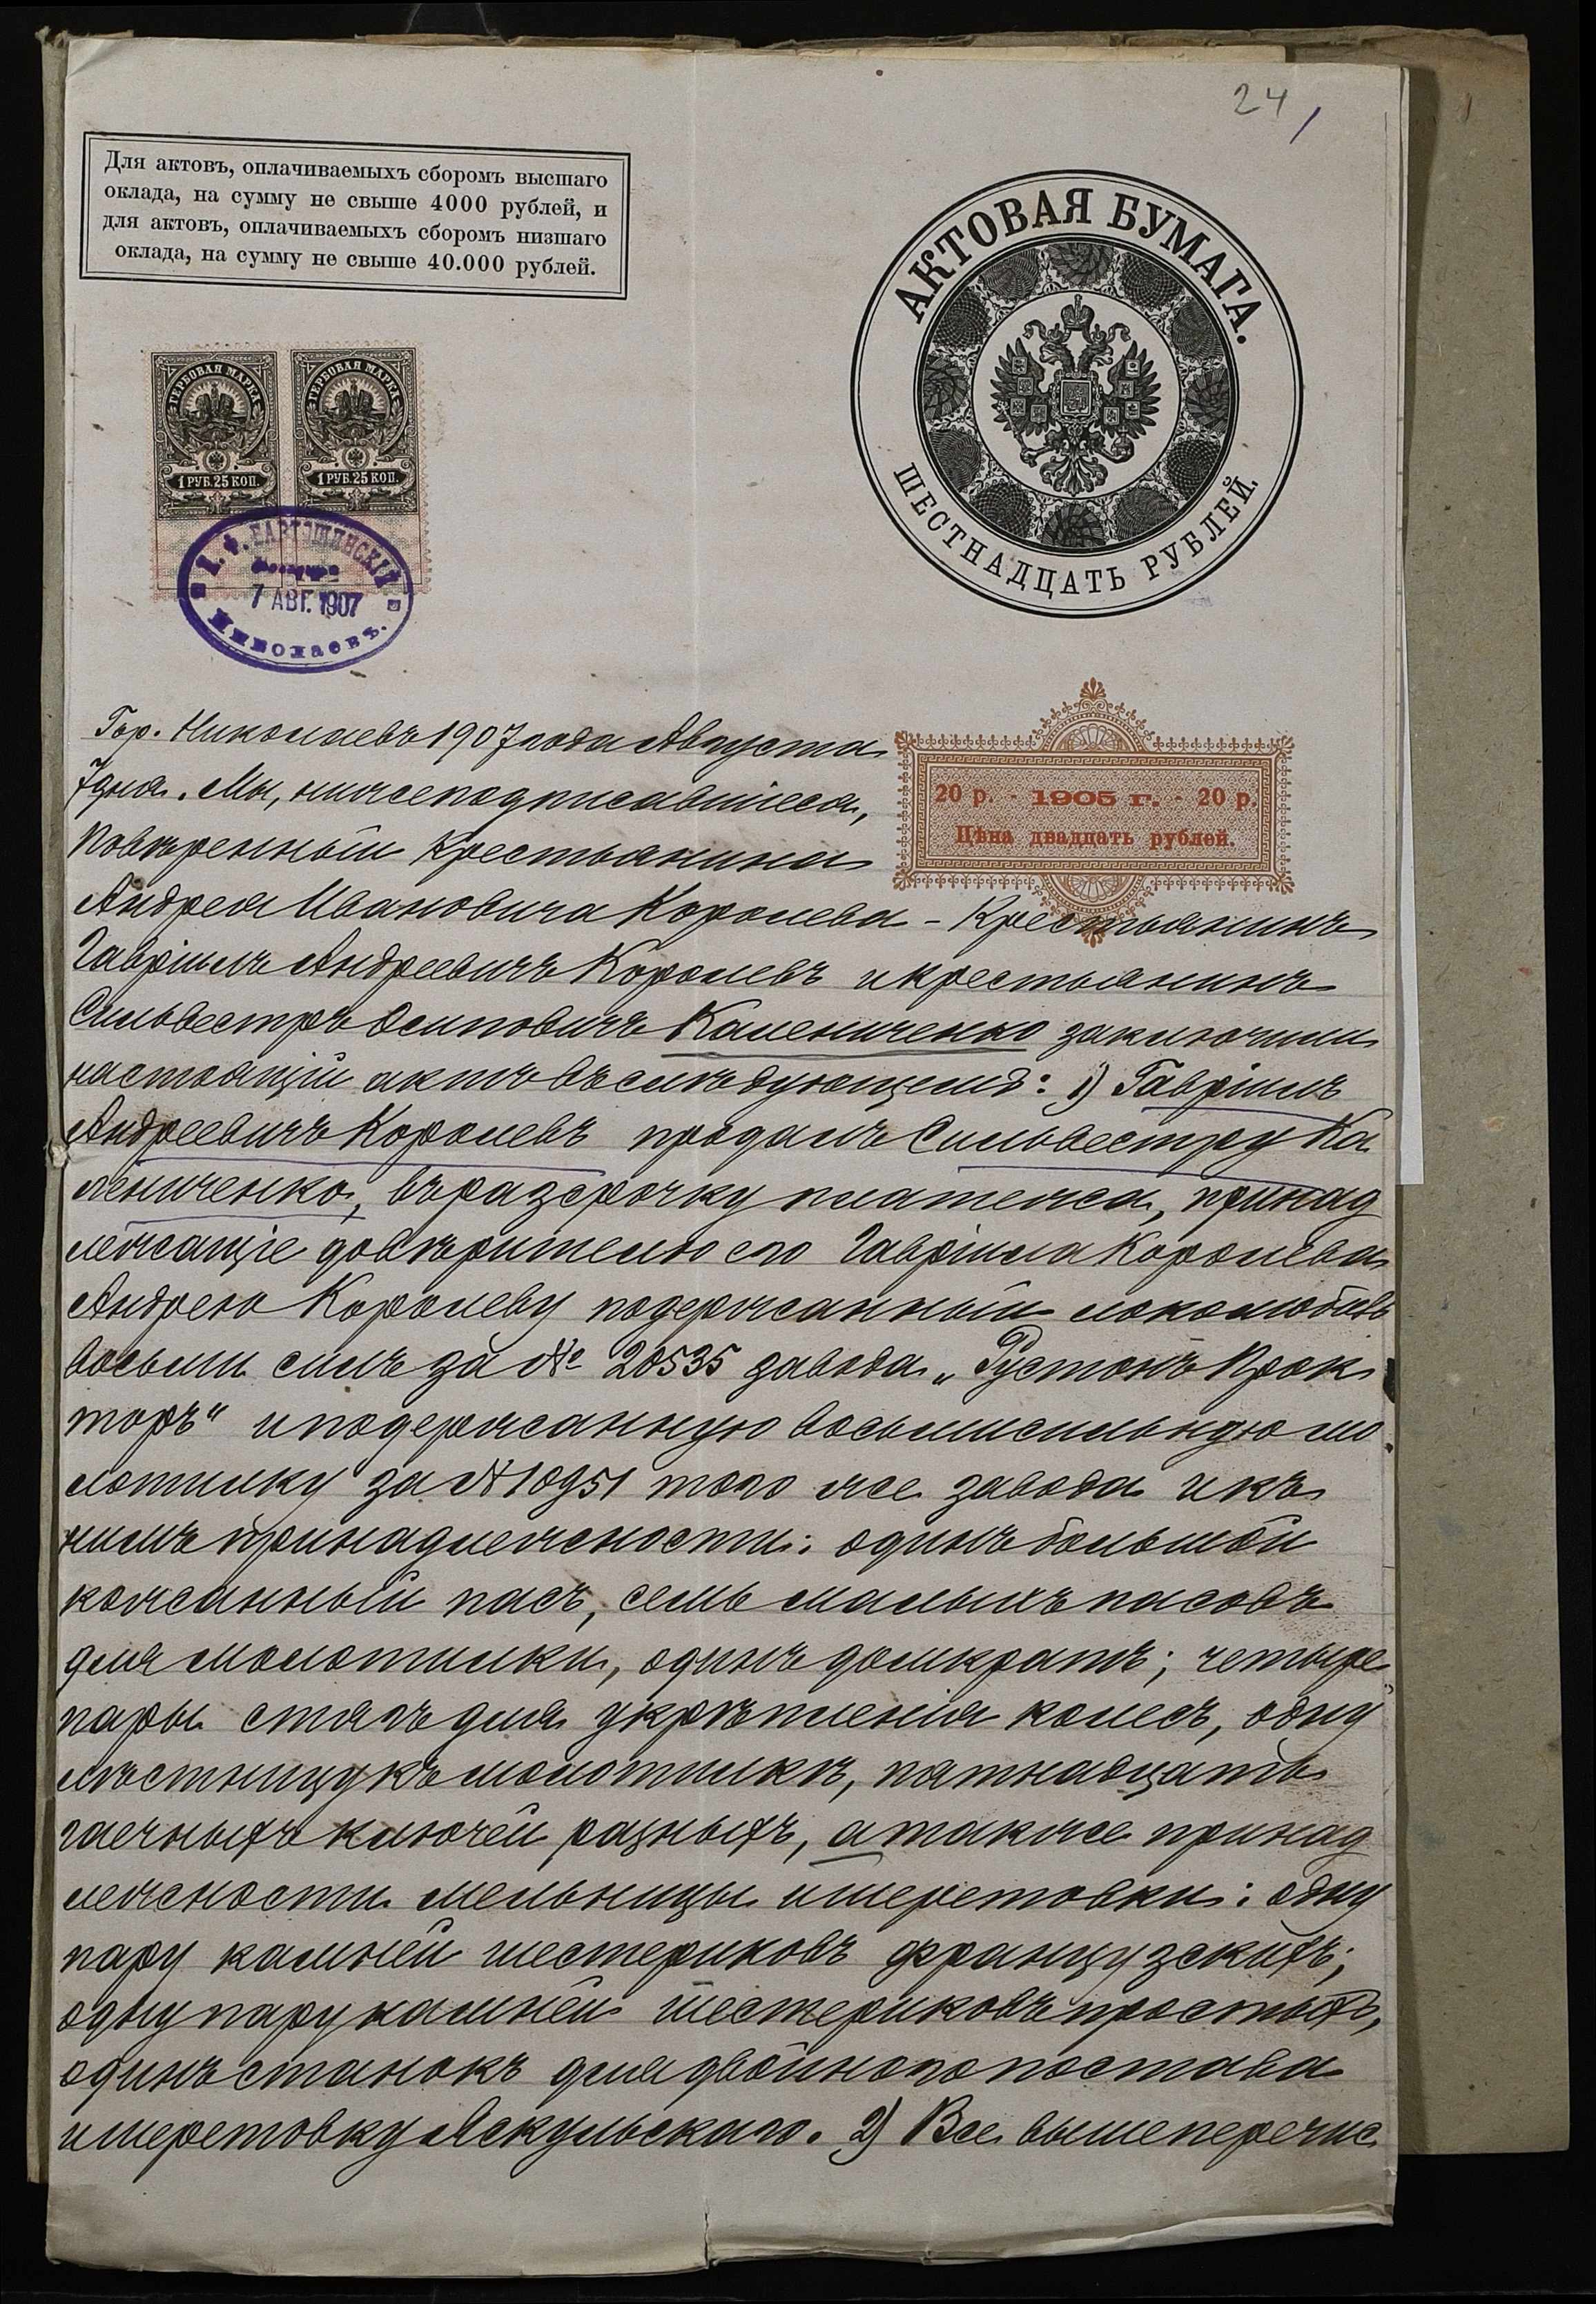 24
Для актовъ, оплачиваемыхъ сборомъ высшаго
оклада, на сумму не свыше 4000 рублей, и
для актовъ, оплачиваемыхъ сборомъ низшаго
оклада, на сумму не свыше 40.000 рублей.
АКТОВАЯ БУМАГА.
ШЕСТНАДЦАТЬ РУБЛЕЙ.
ГЕРБОВАЯ МАРКА
1 РУБ. 25 КОП.
ГЕРБОВАЯ МАРКА
1 РУБ. 25 КОП.
БАРТОШИНСКІЙ
7 АВГ. 1907
Николаевъ.
20 р. - 1905 г. - 20 р.
Цѣна двадцать рублей.
Гор. Николаевъ 1907 года Августа
7 дня. Мы, нижеподписавшіеся,
повѣренный крестьянина
Андрея Ивановича Королева - крестьянинъ
Гавріилъ Андреевичъ Королевъ и крестьянинъ
Сильвестръ Осиповичъ Калениченко заключили
настоящій актъ въ слѣдующемъ: 1) Гавріилъ
Андреевичъ Королевъ продалъ Сильвестру Ка
лениченко, въ разсрочку платежа, принад
лежащіе довѣрителю его Гавріила Королева
Андрею Королеву подержанный локомобиль
восьми силъ за № 20535 завода „Рустонъ Прок
торъ" и подержанную восьмисильную мо
лотилку за № 10951 того же завода и къ
нимъ принадлежности: одинъ большой
кожанный пасъ, семь малыхъ пасовъ
для молотилки, одинъ домкратъ; четыре
пары стягъ для укрѣпленія колесъ, одну
лѣстницу къ молотилкѣ, пятнадцать
гаечныхъ ключей разныхъ, а также принад
лежности мельницы и шеретовки: одну
пару камней шестериковъ французскихъ;
одну пару камней шестериковъ простыхъ,
одинъ станокъ для двойного постава
и шеретовку Яскульскаго. 2) Все вышеперечис